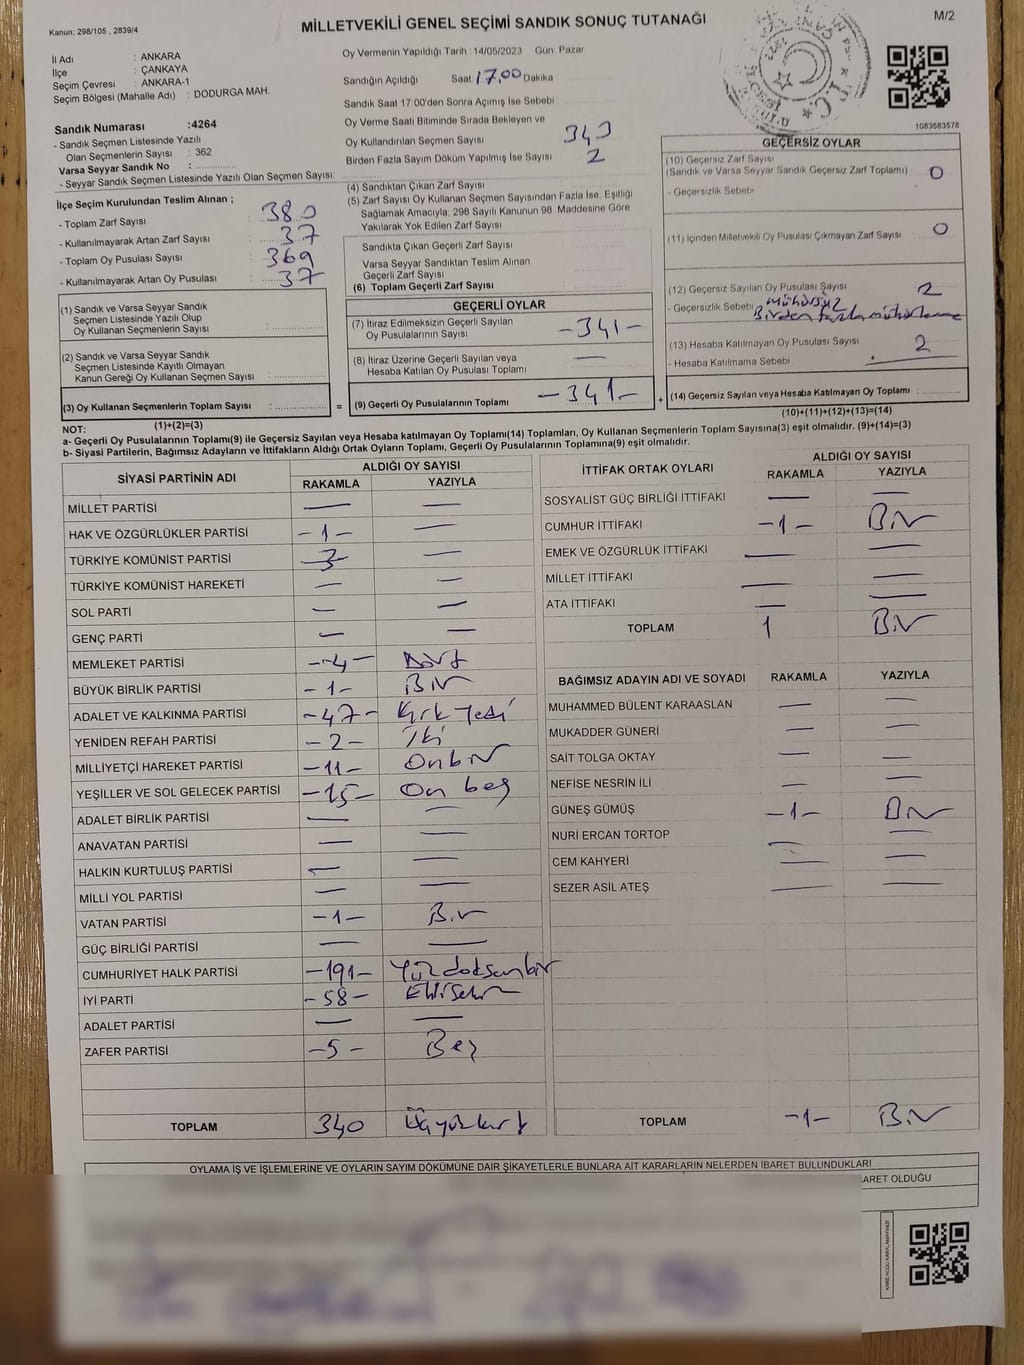 Kanun: 298/105 , 2839/4
MİLLETVEKİLİ GENEL SEÇİMİ SANDIK SONUÇ TUTANAĞI
M/2
İl Adı : ANKARA
İlçe : ÇANKAYA
Seçim Çevresi : ANKARA-1
Seçim Bölgesi (Mahalle Adı) : DODURGA MAH.
Oy Vermenin Yapıldığı Tarih : 14/05/2023 Gün: Pazar
Sandığın Açıldığı Saat 17.00 Dakika
Sandık Saat 17:00'den Sonra Açımış İse Sebebi
Oy Verme Saati Bitiminde Sırada Bekleyen ve
Oy Kullandırılan Seçmen Sayısı 343
Birden Fazla Sayım Döküm Yapılmış İse Sayısı 2
1083683578
Sandık Numarası :4264
- Sandık Seçmen Listesinde Yazılı
Olan Seçmenlerin Sayısı : 362
Varsa Seyyar Sandık No :
- Seyyar Sandık Seçmen Listesinde Yazılı Olan Seçmen Sayısı:
İlçe Seçim Kurulundan Teslim Alınan ;
- Toplam Zarf Sayısı : 380
- Kullanılmayarak Artan Zarf Sayısı : 37
- Toplam Oy Pusulası Sayısı : 369
- Kullanılmayarak Artan Oy Pusulası : 37
(1) Sandık ve Varsa Seyyar Sandık
Seçmen Listesinde Yazılı Olup
Oy Kullanan Seçmenlerin Sayısı :
(2) Sandık ve Varsa Seyyar Sandık
Seçmen Listesinde Kayıtlı Olmayan
Kanun Gereği Oy Kullanan Seçmen Sayısı :
(3) Oy Kullanan Seçmenlerin Toplam Sayısı : =
(4) Sandıktan Çıkan Zarf Sayısı
(5) Zarf Sayısı Oy Kullanan Seçmen Sayısından Fazla İse, Eşitliği
Sağlamak Amacıyla; 298 Sayılı Kanunun 98. Maddesine Göre
Yakılarak Yok Edilen Zarf Sayısı
Sandıkta Çıkan Geçerli Zarf Sayısı
Varsa Seyyar Sandıktan Teslim Alınan
Geçerli Zarf Sayısı
(6) Toplam Geçerli Zarf Sayısı
GEÇERLİ OYLAR
(7) İtiraz Edilmeksizin Geçerli Sayılan
Oy Pusulalarının Sayısı : -341-
(8) İtiraz Üzerine Geçerli Sayılan veya
Hesaba Katılan Oy Pusulası Toplamı : —
(9) Geçerli Oy Pusulalarının Toplamı : -341- +
GEÇERSİZ OYLAR
(10) Geçersiz Zarf Sayısı
(Sandık ve Varsa Seyyar Sandık Geçersiz Zarf Toplamı) : 0
- Geçersizlik Sebebi
(11) İçinden Milletvekili Oy Pusulası Çıkmayan Zarf Sayısı : 0
(12) Geçersiz Sayılan Oy Pusulası Sayısı 2
- Geçersizlik Sebebi : mühürsüz
Birden fazla mühürleme
(13) Hesaba Katılmayan Oy Pusulası Sayısı : 2
- Hesaba Katılmama Sebebi :
(14) Geçersiz Sayılan veya Hesaba Katılmayan Oy Toplamı :
NOT: (1)+(2)=(3)
(10)+(11)+(12)+(13)=(14)
a- Geçerli Oy Pusulalarının Toplamı(9) ile Geçersiz Sayılan veya Hesaba katılmayan Oy Toplamı(14) Toplamları, Oy Kullanan Seçmenlerin Toplam Sayısına(3) eşit olmalıdır. (9)+(14)=(3)
b- Siyasi Partilerin, Bağımsız Adayların ve İttifakların Aldığı Ortak Oyların Toplamı, Geçerli Oy Pusulalarının Toplamına(9) eşit olmalıdır.
SİYASİ PARTİNİN ADI ALDIĞI OY SAYISI
RAKAMLA YAZIYLA
MİLLET PARTİSİ — —
HAK VE ÖZGÜRLÜKLER PARTİSİ -1- —
TÜRKİYE KOMÜNİST PARTİSİ 3 —
TÜRKİYE KOMÜNİST HAREKETİ — —
SOL PARTİ — —
GENÇ PARTİ — —
MEMLEKET PARTİSİ -4- Dört
BÜYÜK BİRLİK PARTİSİ -1- Bir
ADALET VE KALKINMA PARTİSİ -47- Kırk Yedi
YENİDEN REFAH PARTİSİ -2- İki
MİLLİYETÇİ HAREKET PARTİSİ -11- Onbir
YEŞİLLER VE SOL GELECEK PARTİSİ -15- On beş
ADALET BİRLİK PARTİSİ — —
ANAVATAN PARTİSİ — —
HALKIN KURTULUŞ PARTİSİ — —
MİLLİ YOL PARTİSİ — —
VATAN PARTİSİ -1- Bir
GÜÇ BİRLİĞİ PARTİSİ — —
CUMHURİYET HALK PARTİSİ -191- Yüzdoksanbir
İYİ PARTİ -58- Ellisekiz
ADALET PARTİSİ — —
ZAFER PARTİSİ -5- Beş
TOPLAM 340 Üçyüzkırk
İTTİFAK ORTAK OYLARI ALDIĞI OY SAYISI
RAKAMLA YAZIYLA
SOSYALİST GÜÇ BİRLİĞİ İTTİFAKI — —
CUMHUR İTTİFAKI -1- Bir
EMEK VE ÖZGÜRLÜK İTTİFAKI — —
MİLLET İTTİFAKI — —
ATA İTTİFAKI — —
TOPLAM 1 Bir
BAĞIMSIZ ADAYIN ADI VE SOYADI RAKAMLA YAZIYLA
MUHAMMED BÜLENT KARAASLAN — —
MUKADDER GÜNERİ — —
SAİT TOLGA OKTAY — —
NEFİSE NESRİN İLİ — —
GÜNEŞ GÜMÜŞ -1- Bir
NURİ ERCAN TORTOP — —
CEM KAHYERİ — —
SEZER ASİL ATEŞ — —
TOPLAM -1- Bir
OYLAMA İŞ VE İŞLEMLERİNE VE OYLARIN SAYIM DÖKÜMÜNE DAİR ŞİKAYETLERLE BUNLARA AİT KARARLARIN NELERDEN İBARET BULUNDUKLARI
BARET OLDUĞU